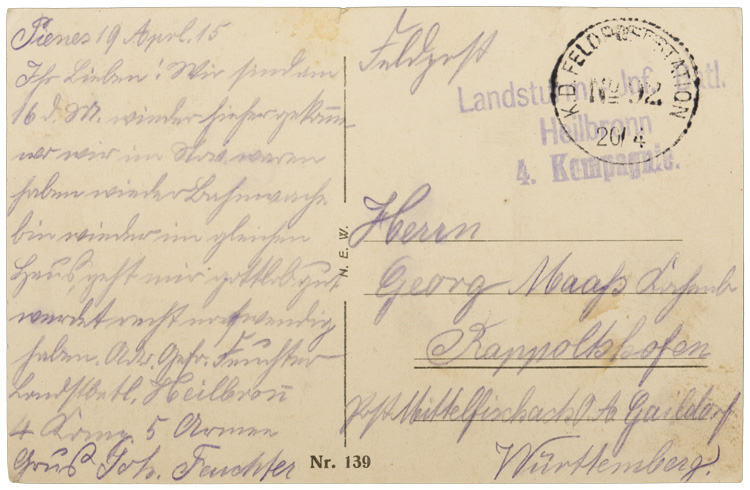 Pienes 19 Aprl. 15
Ihr Lieben! Wir sind am
16 d. M. wieder hieher gekomm-
wo wir im Nov. waren
haben wieder Bahnwache
bin wieder im gleichen
Haus, geht mir gottlob gut
werdet recht nothwendig
haben. Adr. Gefr. Feuchter
Landstbtl. Heilbron̄
4 Komp. 5 Armee
Grus Joh. Feuchter
Feldpost
Landsturm Inf. Batl.
Heilbronn
4. Kompagnie.
K.D. FELDPOSTSTATION
No 92
20/4
Herrn
Georg Maaß
Rappoltshofen
Post Mittelfischach O.A. Gaildorf
Württemberg.
N. E. W.
Nr. 139